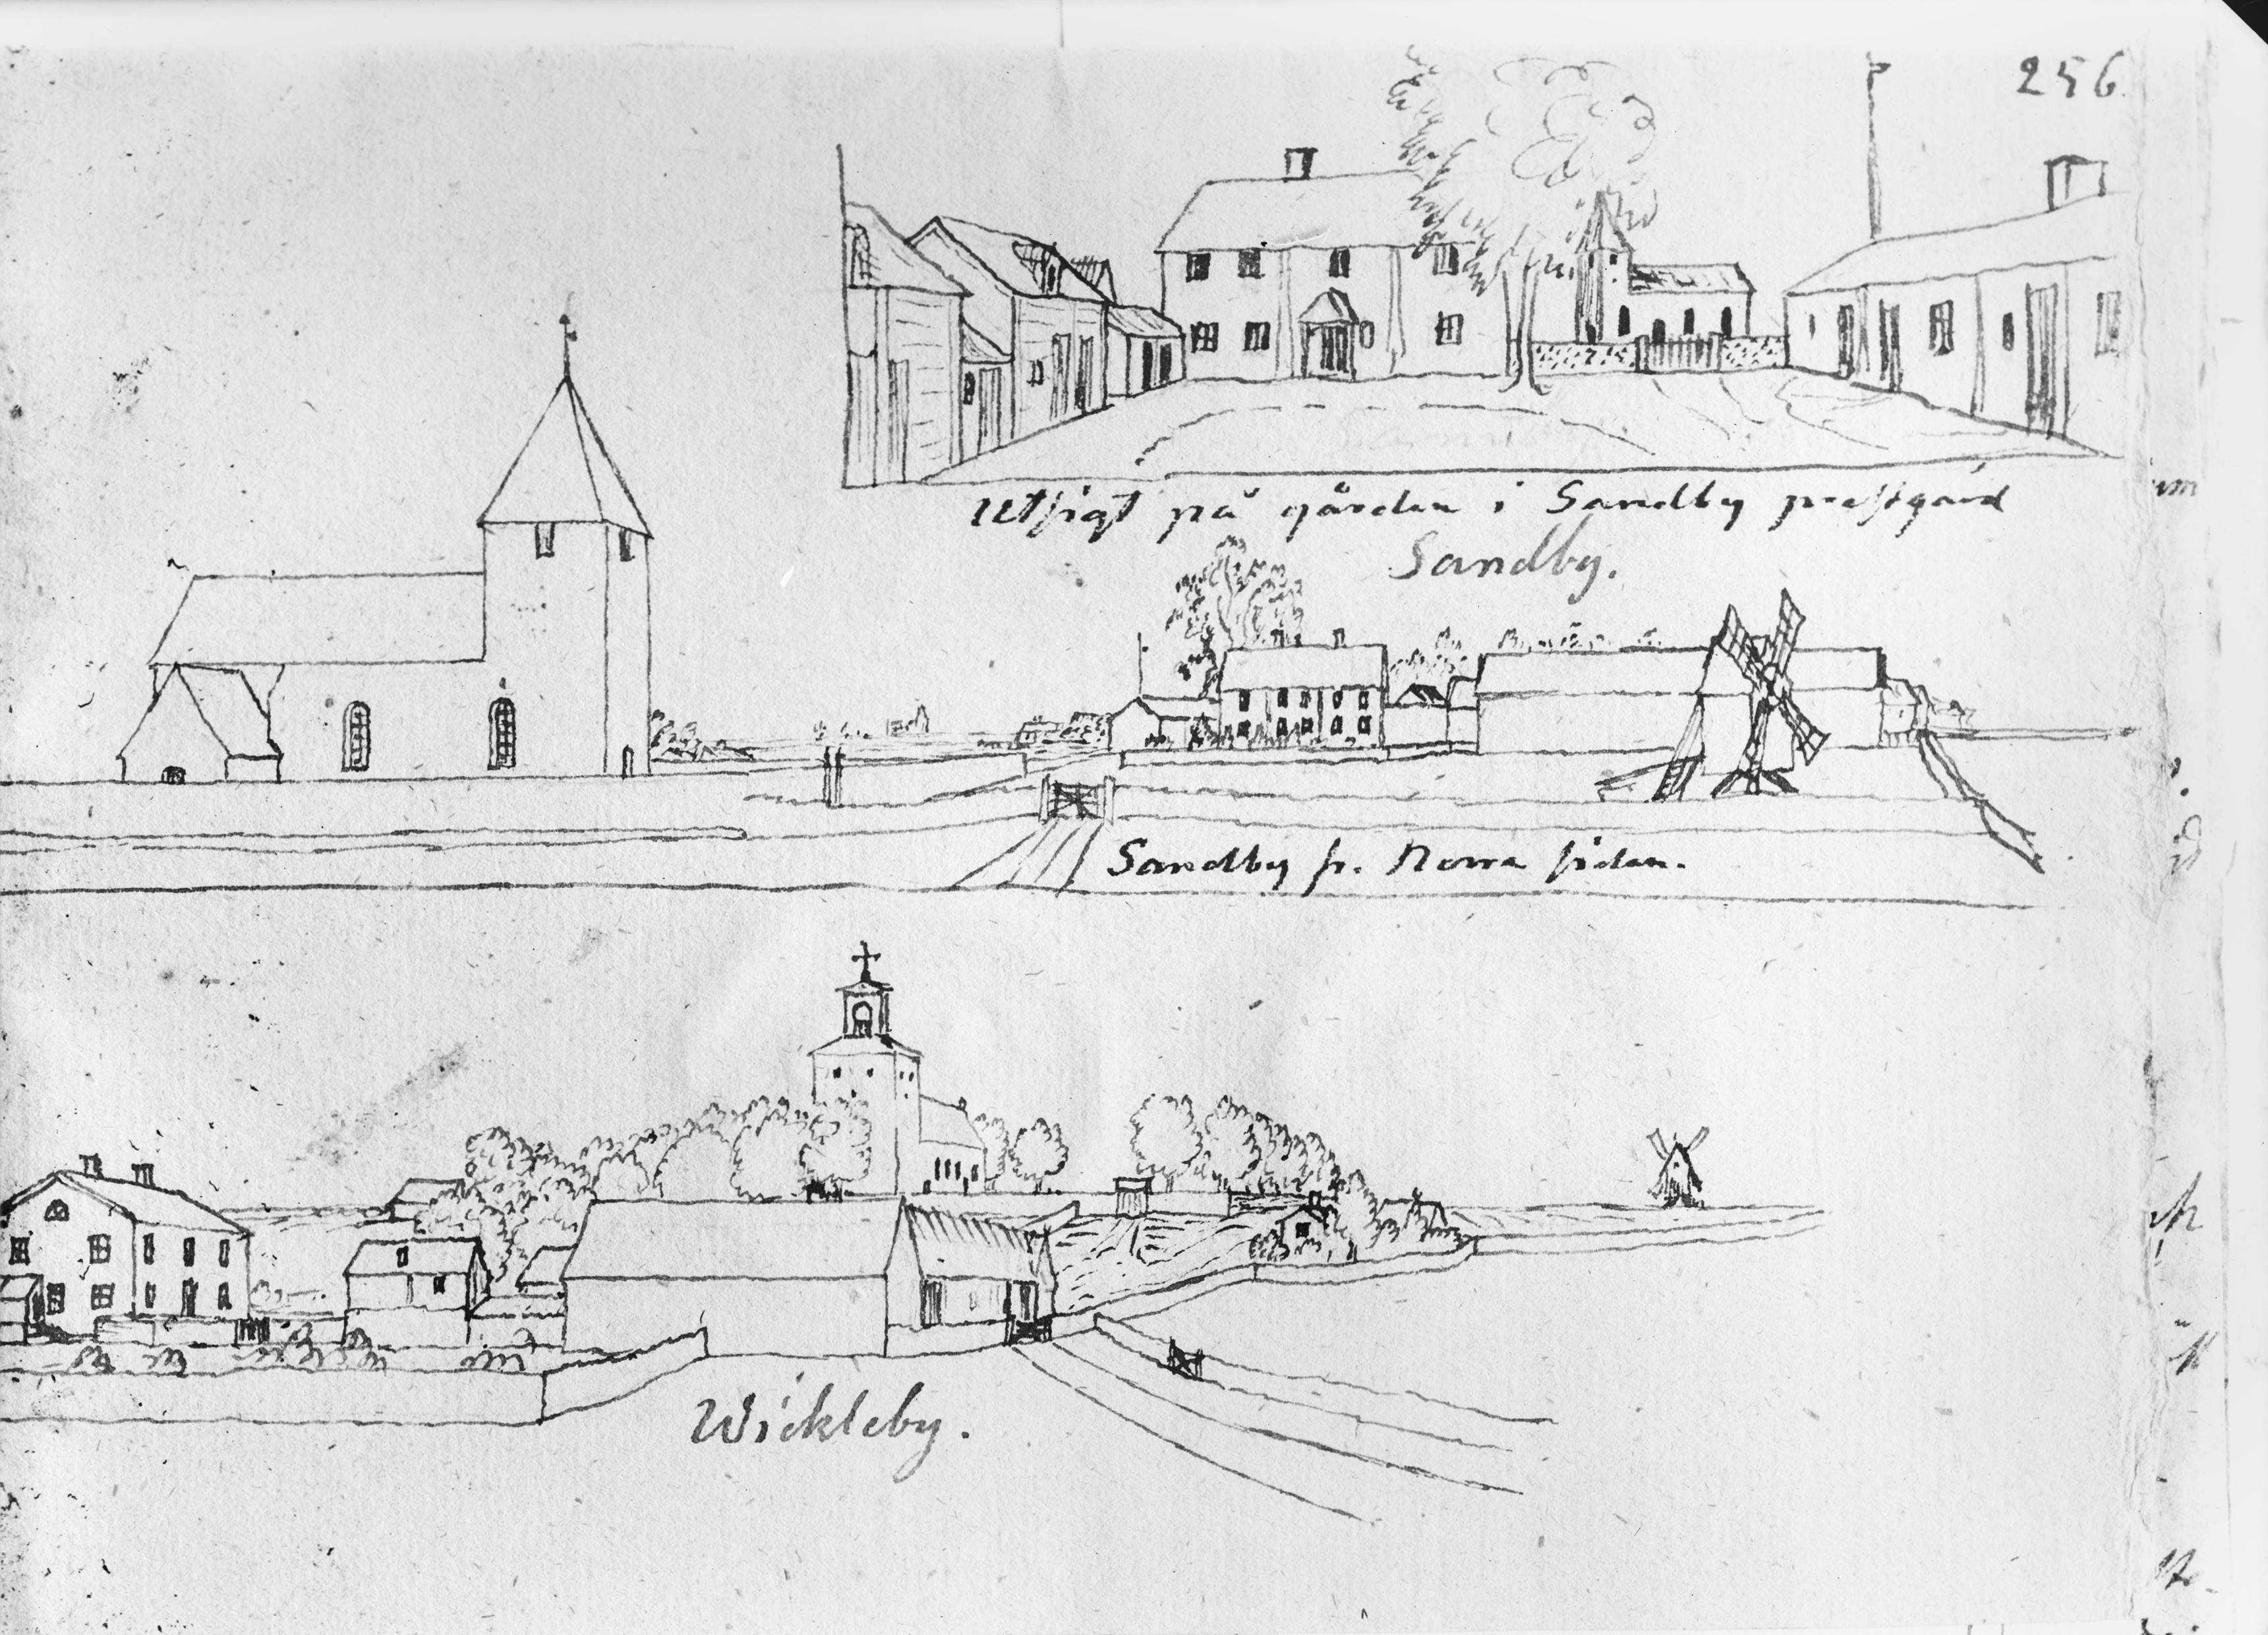 256
Utsigt på gården i Sandby prestgård
Sandby.
Sandby fr. Norra sidan.
Wickleby.